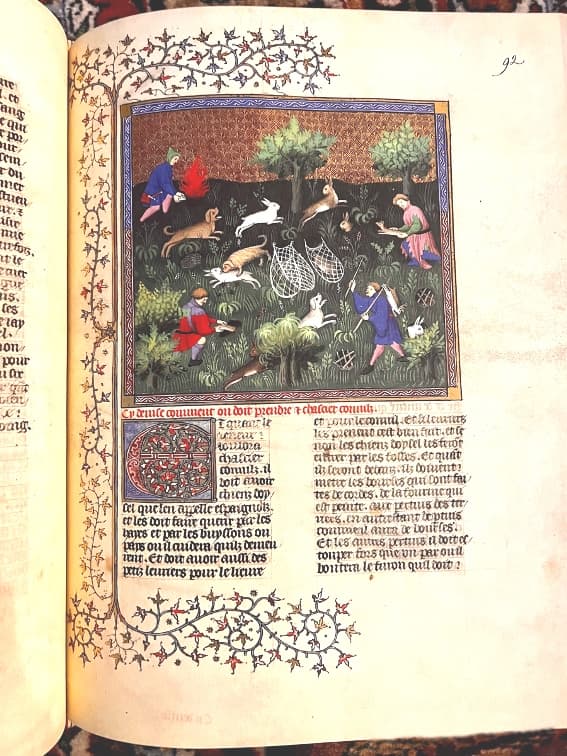 92
Cy devise comment on doit prendre & chassier connilz.
Et quant le
veneur
vouldra
chassier
connilz. il
doit avoir
chiens doy
sel que len appelle espaignolz.
et les doit faire querir par les
hayes et par les buyssons ou
pays ou il cuidera quilz demeu
rent. Et doit avoir aussi des
petiz levriers pour le lievre
et pour le connil. Et se levriers
les prenent cest bien fait. et se
non les chiens doysel les feront
entrer par les fosses. Et quant
ilz seront dedenz. ilz doivent
mettre les bourses qui sont fai
tes de cordes. de la fourme qui
est peinte. aux pertuis des ter
riers. en autretant de ptuis
comme il aura de bourses.
Et les autres pertuis il doit es
touper fors que un par ou il
boutera le fuiron qui doit